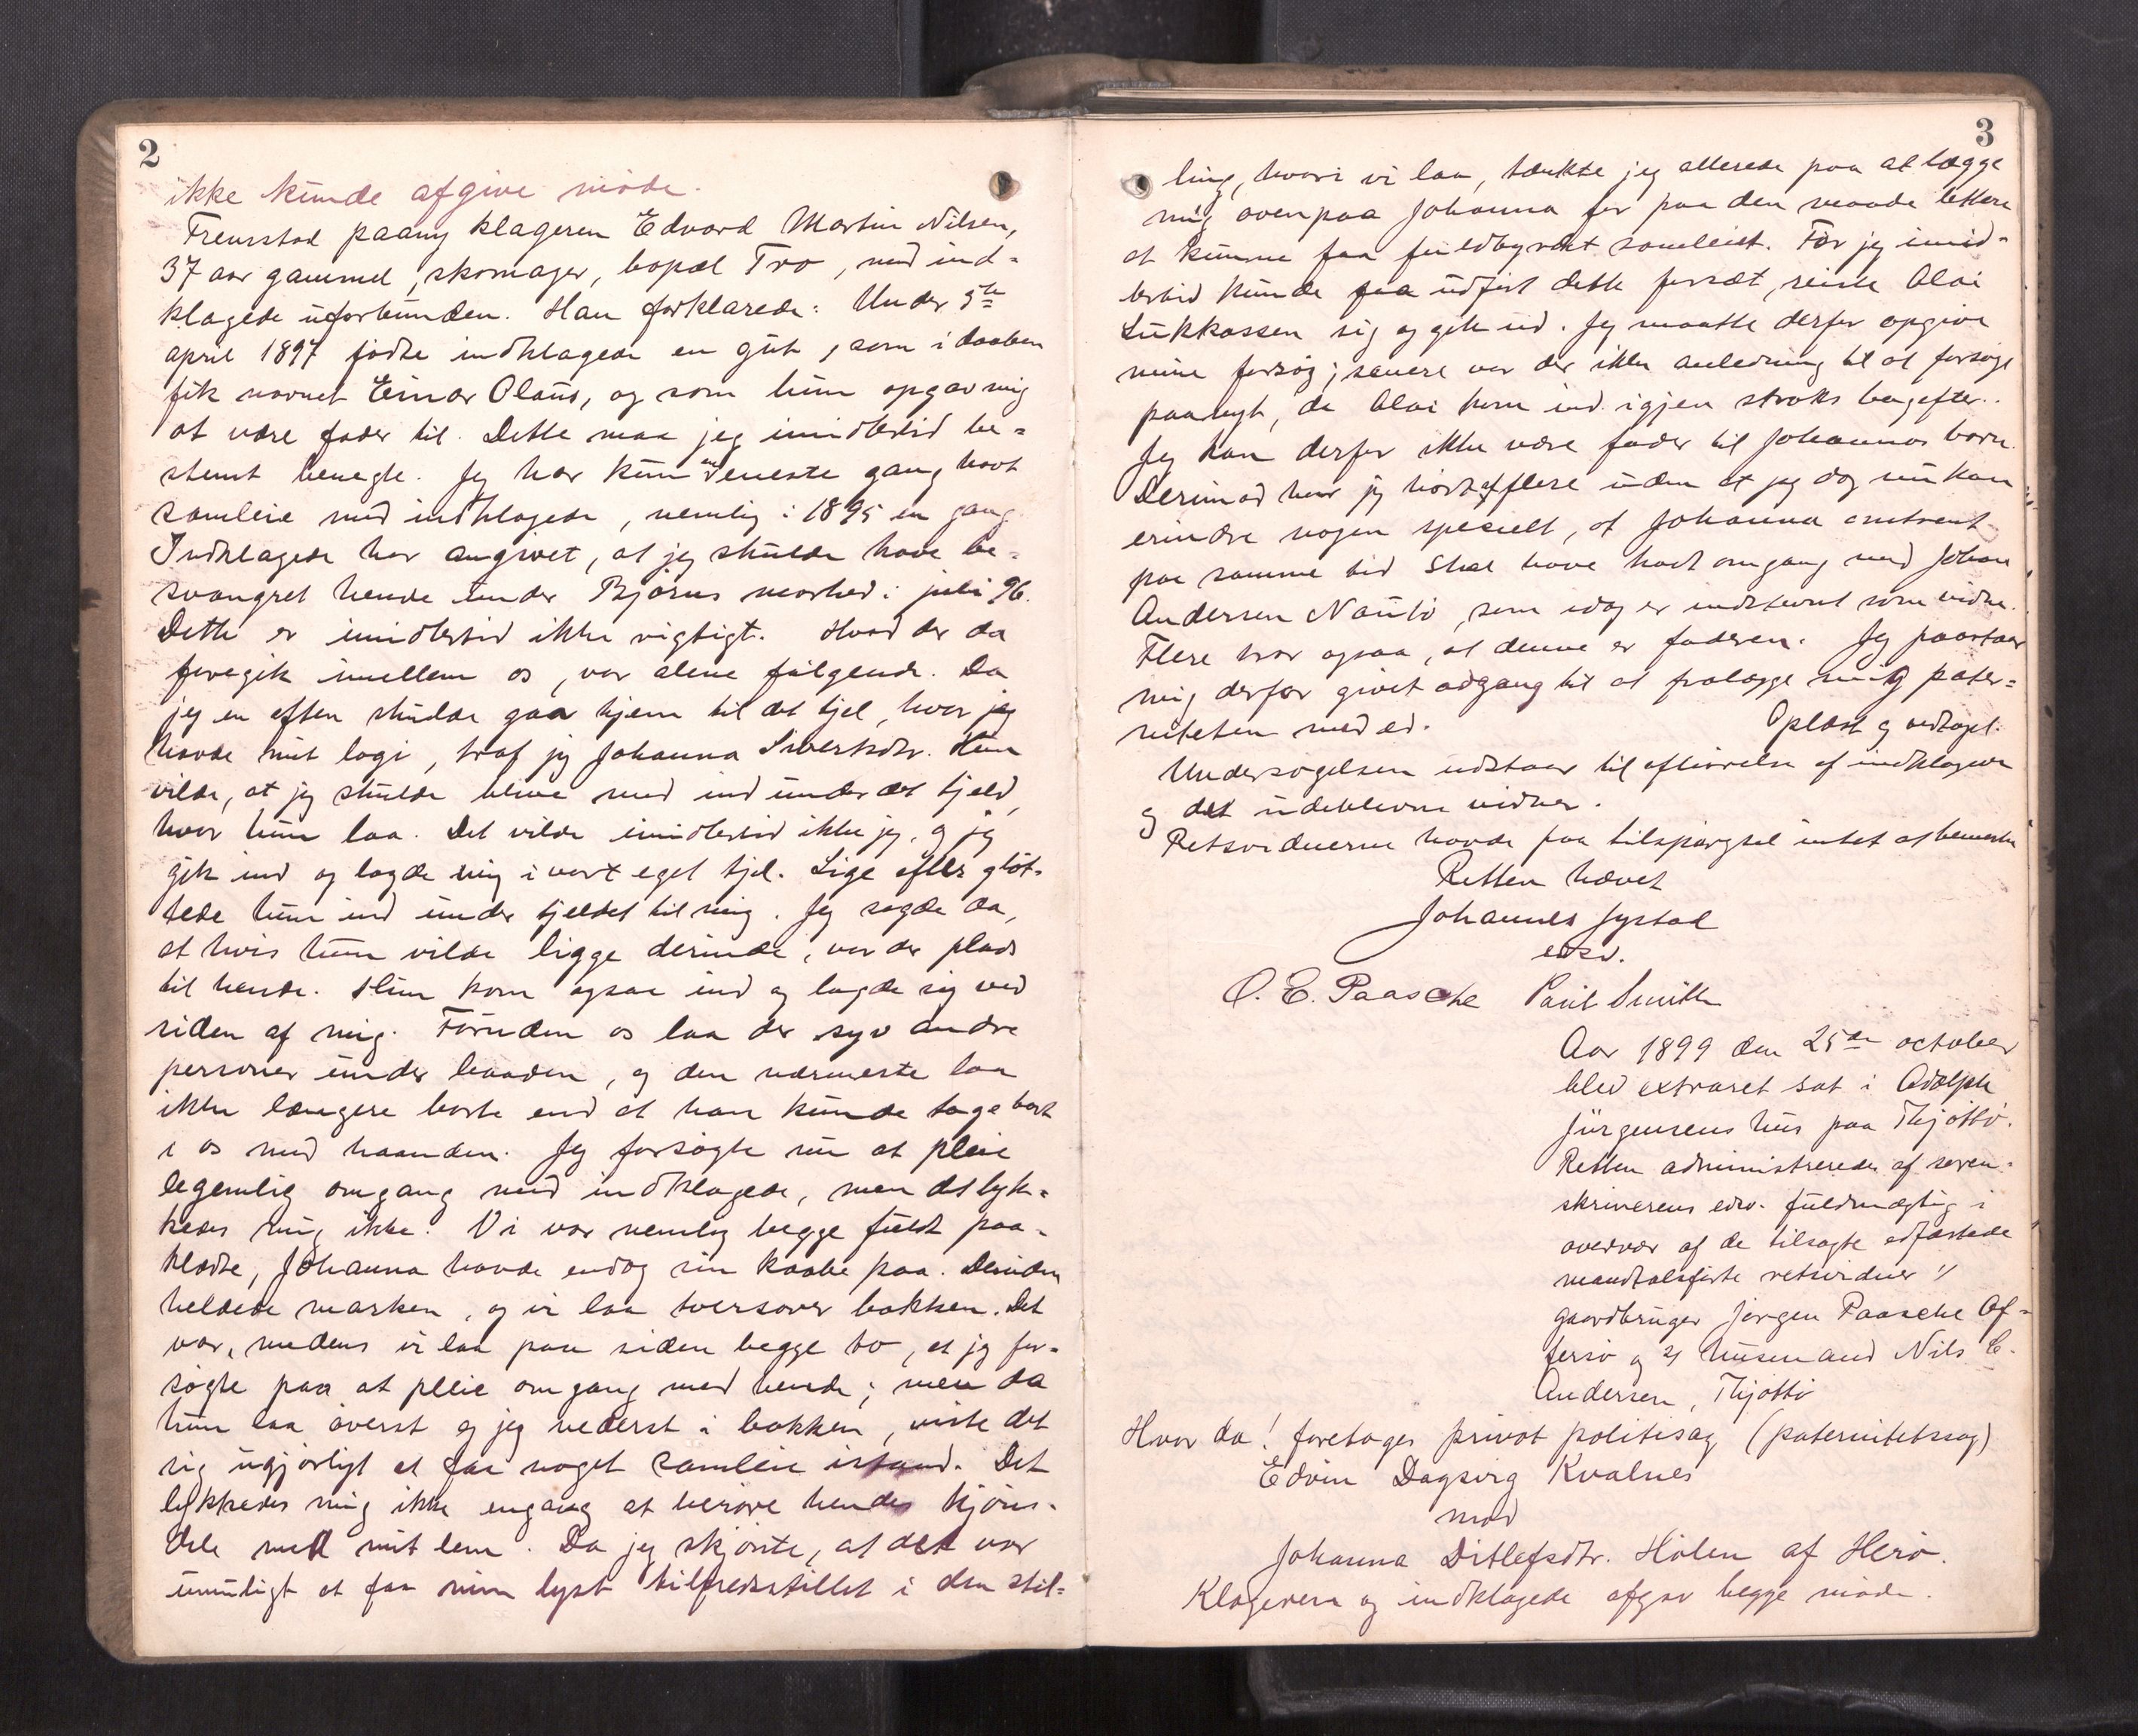 2
ikke kunde afgive møde.
Fremstod paany klageren Edvard Martin Nilsen,
37 aar gammel, skomager, bopæl Tro, med ind-
klagede uforbunden. Han forklarede: Under 5te
april 1897 fødte indklagede en gut, som i daaben
fik navnet Einar Olaus, og som hun opgav mig
at være fader til. Dette maa jeg imidlertid be-
stemt benegte. Jeg har kun en eneste gang havt
samleie med indklagede, nemlig i 1895 en gang
Indklagede har angivet, at jeg skulde have be-
svangret hende under Bjørns marked i juli 96.
Dette er imidlertid ikke rigtigt. Hvad der da
foregik imellem os, var alene følgende. Da
jeg en aften skulde gaa hjem til det tjel, hvor jeg
havde mit logi, traf jeg Johanna Sivertsdtr. Hun
vilde, at jeg skulde blive med ind under det tjeld,
hvor hun laa. Det vilde imidlertid ikke jeg, og jeg
gik ind og lagde mig i vort eget tjel. Lige efter gløt-
tede hun ind under tjeldet til mig. Jeg sagde da,
at hvis hun vilde ligge derinde, var der plads
til hende. Hun kom ogsaa ind og lagde sig ved
siden af mig. Foruden os laa der syv andre
personer under baaden, og den nærmeste laa
ikke længere borte end at han kunde tage bort
i os med haanden. Jeg forsøgte nu at pleie
legemlig omgang med indklagede, men det lyk-
kedes mig ikke. Vi var nemlig begge fuldt paa-
klædte, Johanna havde endog sin kaabe paa. Desuden
heldede marken, og vi laa tversover bakken. Det
var, medens vi laa paa siden begge to, at jeg for-
søgte paa at pleie omgang med hende; men da
hun laa øverst og jeg nederst i bakken, viste det
sig ugjørligt at faa noget samleie istand. Det
lykkedes mig ikke engang at berøre hendes kjøns-
dele med mit lem. Da jeg skjønte, at det var
umuligt at faa min lyst tilfredsstillet i den stil-
3
ling, hvori vi laa, tænkte jeg allerede paa at lægge
mig ovenpaa Johanna for paa den maade lettere
at kunne faa fuldbyrdet samleiet. Før jeg imid-
lertid kunde faa udført dette forsæt, reiste Olai
Lukkassen sig og gik ud. Jeg maatte derfor opgive
mine forsøg; senere var der ikke anledning til at forsøge
paanyt, da Olai kom ind igjen straks bagefter.
Jeg kan derfor ikke være fader til Johannas barn.
Derimod har jeg hørt af flere uden at jeg dog nu kan
erindre nogen specielt, at Johanna omtrent
paa samme tid skal have havt omgang med Johan
Andersen Nautø, som idag er indstevnt som vidne.
Flere tror ogsaa, at denne er faderen. Jeg paastaar
mig derfor givet adgang til at fralægge mig pater-
niteten med ed. Oplæst og vedtaget.
Undersøgelsen udstaar til afhørelse af indklagede
og det udeblevne vidner.
Retsvidnerne havde paa tilspørgsel intet at bemerke
Retten hævet
Johannes Systad
edsv.
O. E. Paasche Paul Smith
Aar 1899 den 25de october
blev extraret sat i Adolph
Jürgensens hus paa Thjøttø.
Retten administreredes af soren-
skriverens edsv. fuldmægtig i
overvær af de tilsagte edfæstede
mandtalsførte retsvidner 1/
gaardbruger Jørgen Paasche Of-
fersø og 2/ husmand Nils C.
Andersen, Thjøttø
Hvor da! foretoges privat politisag (paternitetssag)
Edvin Dagsvig Kvalnes
mod
Johanna Ditlefsdtr. Holen af Herø.
Klageren og indklagede afgav begge møde.